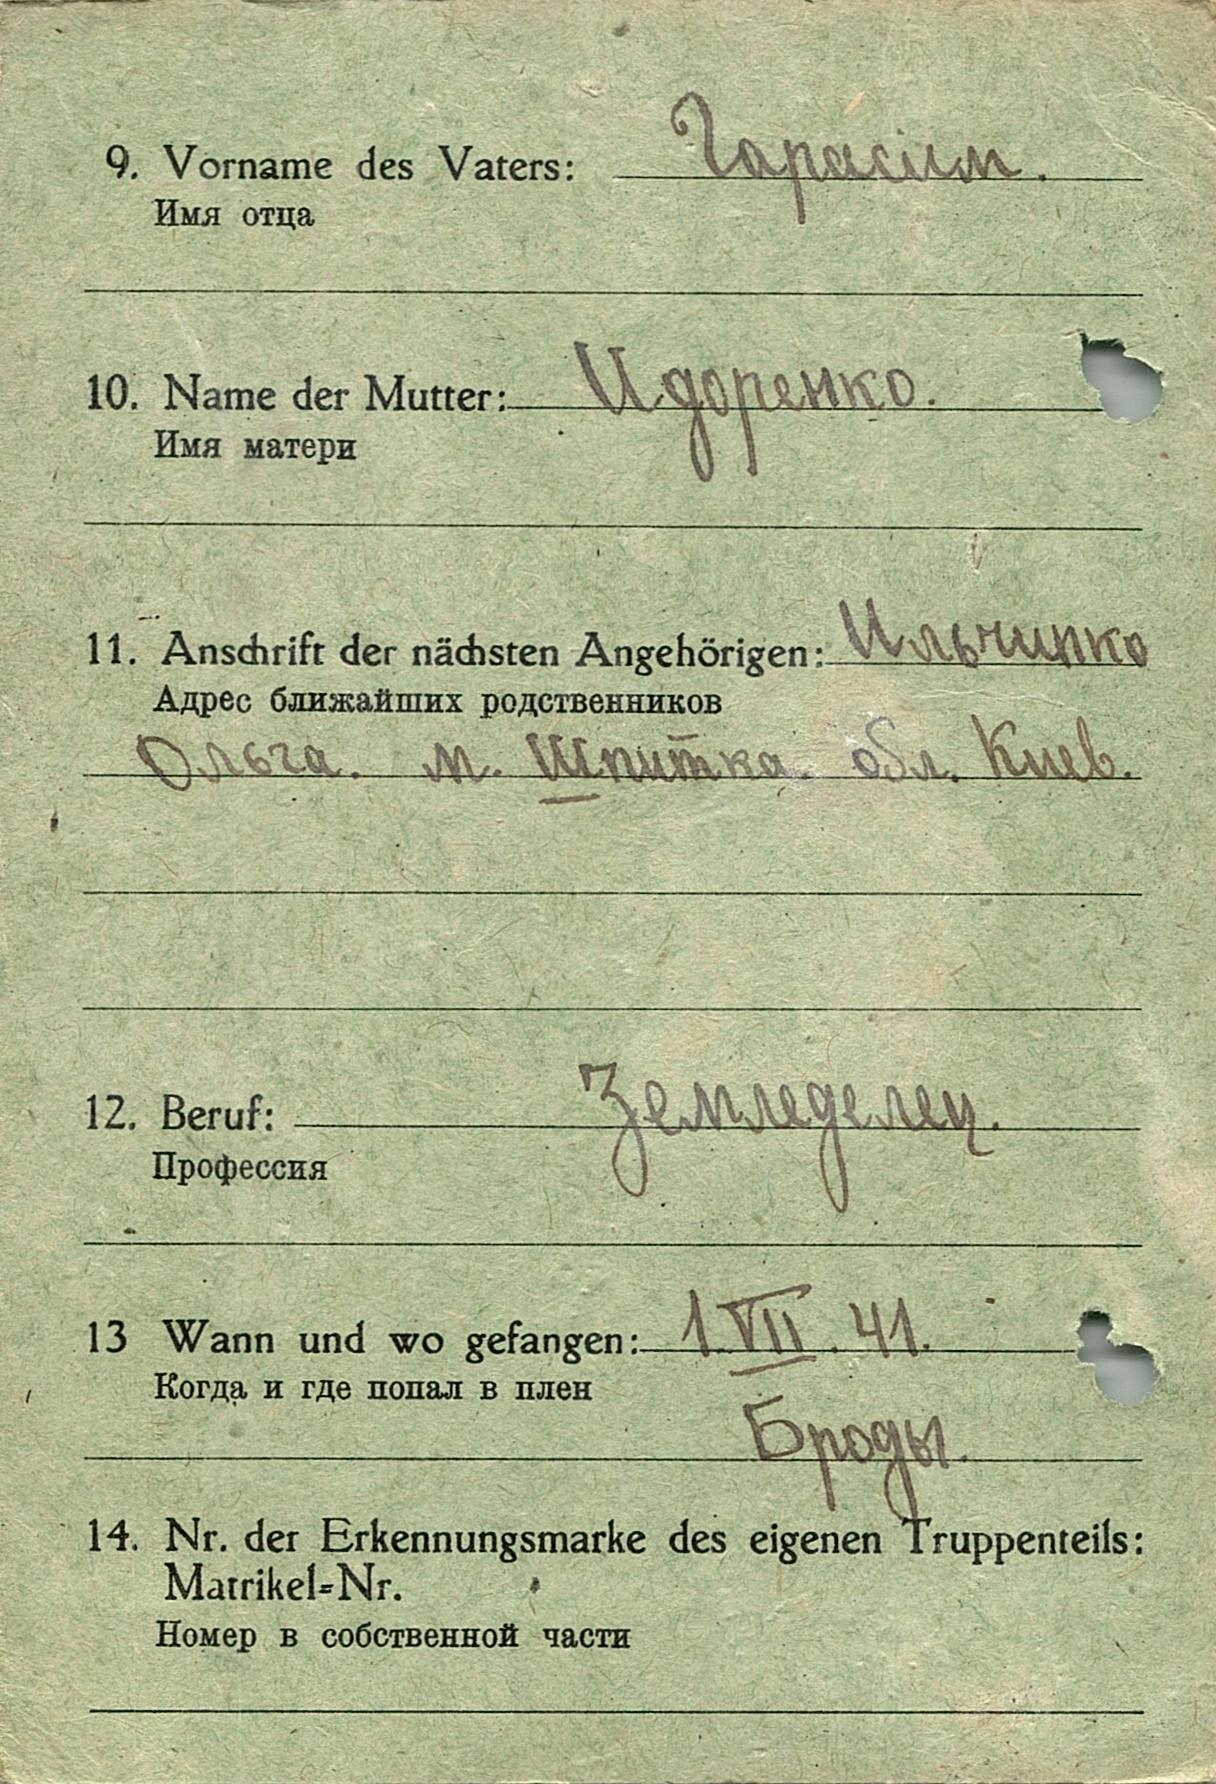 9. Vorname des Vaters: Гарасим.
Имя отца
10. Name der Mutter: Идоренко.
Имя матери
11. Anschrift der nächsten Angehörigen: Ильчинко
Адрес ближайших родственников
Ольга. м. Шпитка. обл. Киев.
12. Beruf: Земледелец.
Профессия
13 Wann und wo gefangen: 1 VII. 41.
Когда и где попал в плен
Броды.
14. Nr. der Erkennungsmarke des eigenen Truppenteils:
Matrikel=Nr.
Номер в собственной части